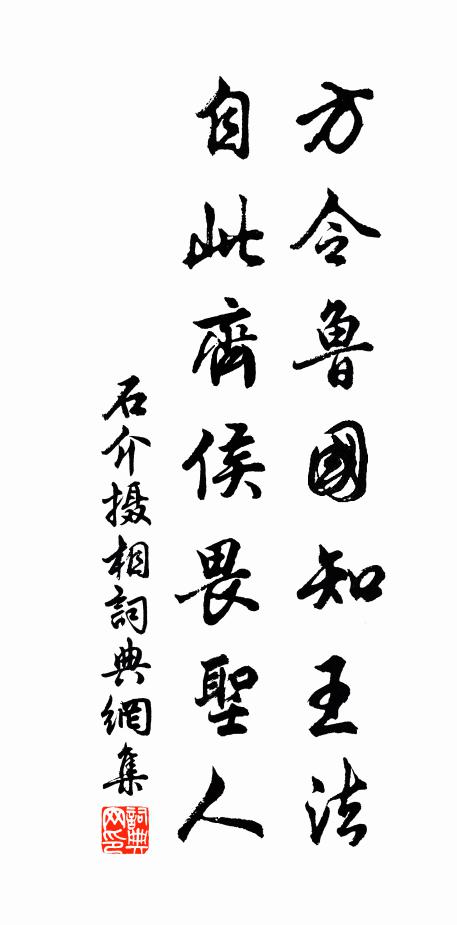 方令鲁國知王法
自此齊侯畏聖人
石介摄相詞典網集
詞典网印